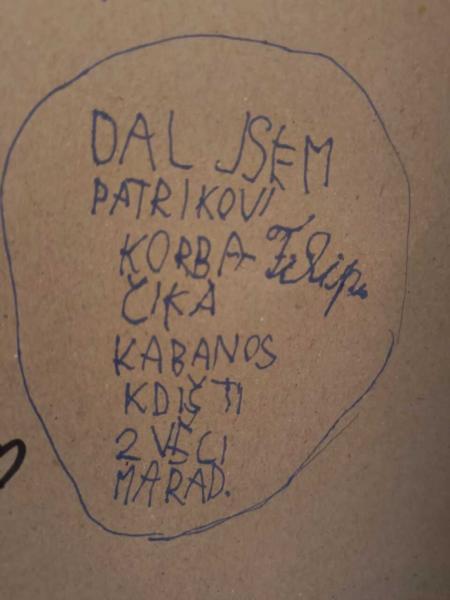 DAL JSEM
PATRIKOVI
KORBA- Filip.
ČIKA
KABANOS
KDIŠTI
2 VĚCI
MÁRAD.